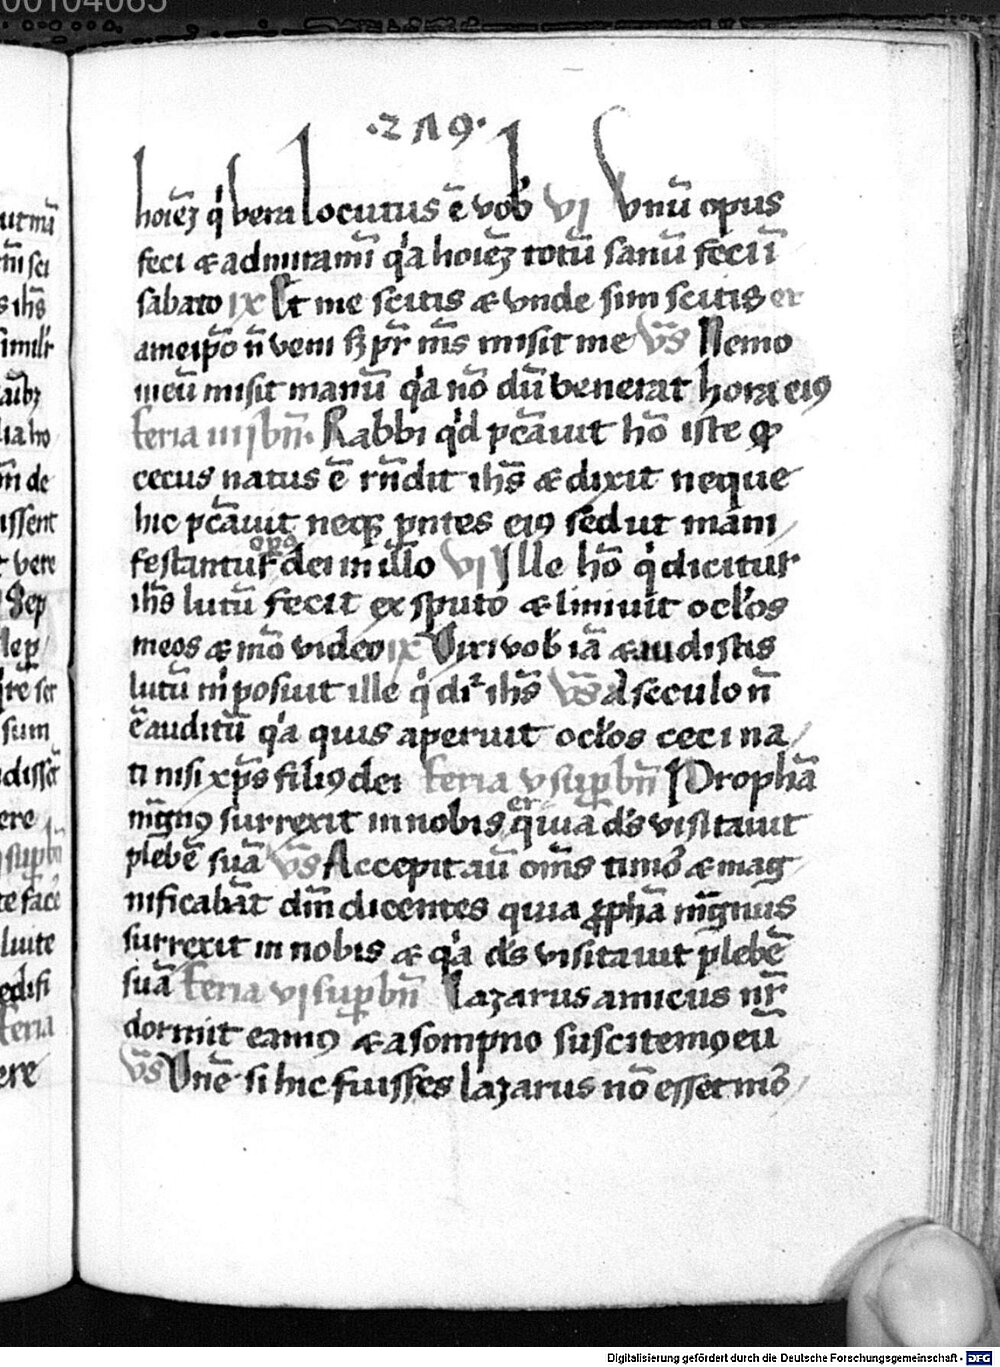 00104065
·219·
hoiēz q̇ vera locutus ē vob̓ VI Vnū opus
feci & admiramī q̓a hoiēz totū sanū feci ī
sabato IX Et me scitis & vnde sim scitis et
ameip̄o n̄ veni sz pr̄ m̄s misit me Vs̄ Nemo
meū misit manū q̓a nō dū venerat hora ei9
feria iiij bn̄. Rabbi q̓d pc̄auit hō iste
cecus natus ē rn̄dit ihs̄ & dixit neque
hic pc̄auit neqz pn̄tes ei9 sed ut mani
festantur op̄a dei in illo VI Ille hō q̇ dicitur
ihs̄ lutū fecit ex sputo & liniuit oclos
meos & mō video IX Viri vob̓ iā & audistis
lutū m̓ posuit ille q̇ dr̓ ihs̄ Vs̄ A seculo n̄
ē auditū q̓a quis aperuit oclos ceci na
ti nisi xp̄s fili9 dei feria v sup bn̄ Prophā
mḡn9 surrexit in nobis et quia ds̄ visitauit
plebē suā Vs̄ Accepit aū om̄s timō & mag
nificabāt dm̄ dicentes quia pphā mḡnus
surrexit in nobis & q̓a ds̄ visitauit plebē
suā feria vj sup bn̄ Lazarus amicus nr̄
dormit eam9 & a sompno suscitem9 eū
Vs̄ Dn̄e si hic fuisses lazarus nō esset mō
Digitalisierung gefördert durch die Deutsche Forschungsgemeinschaft - DFG